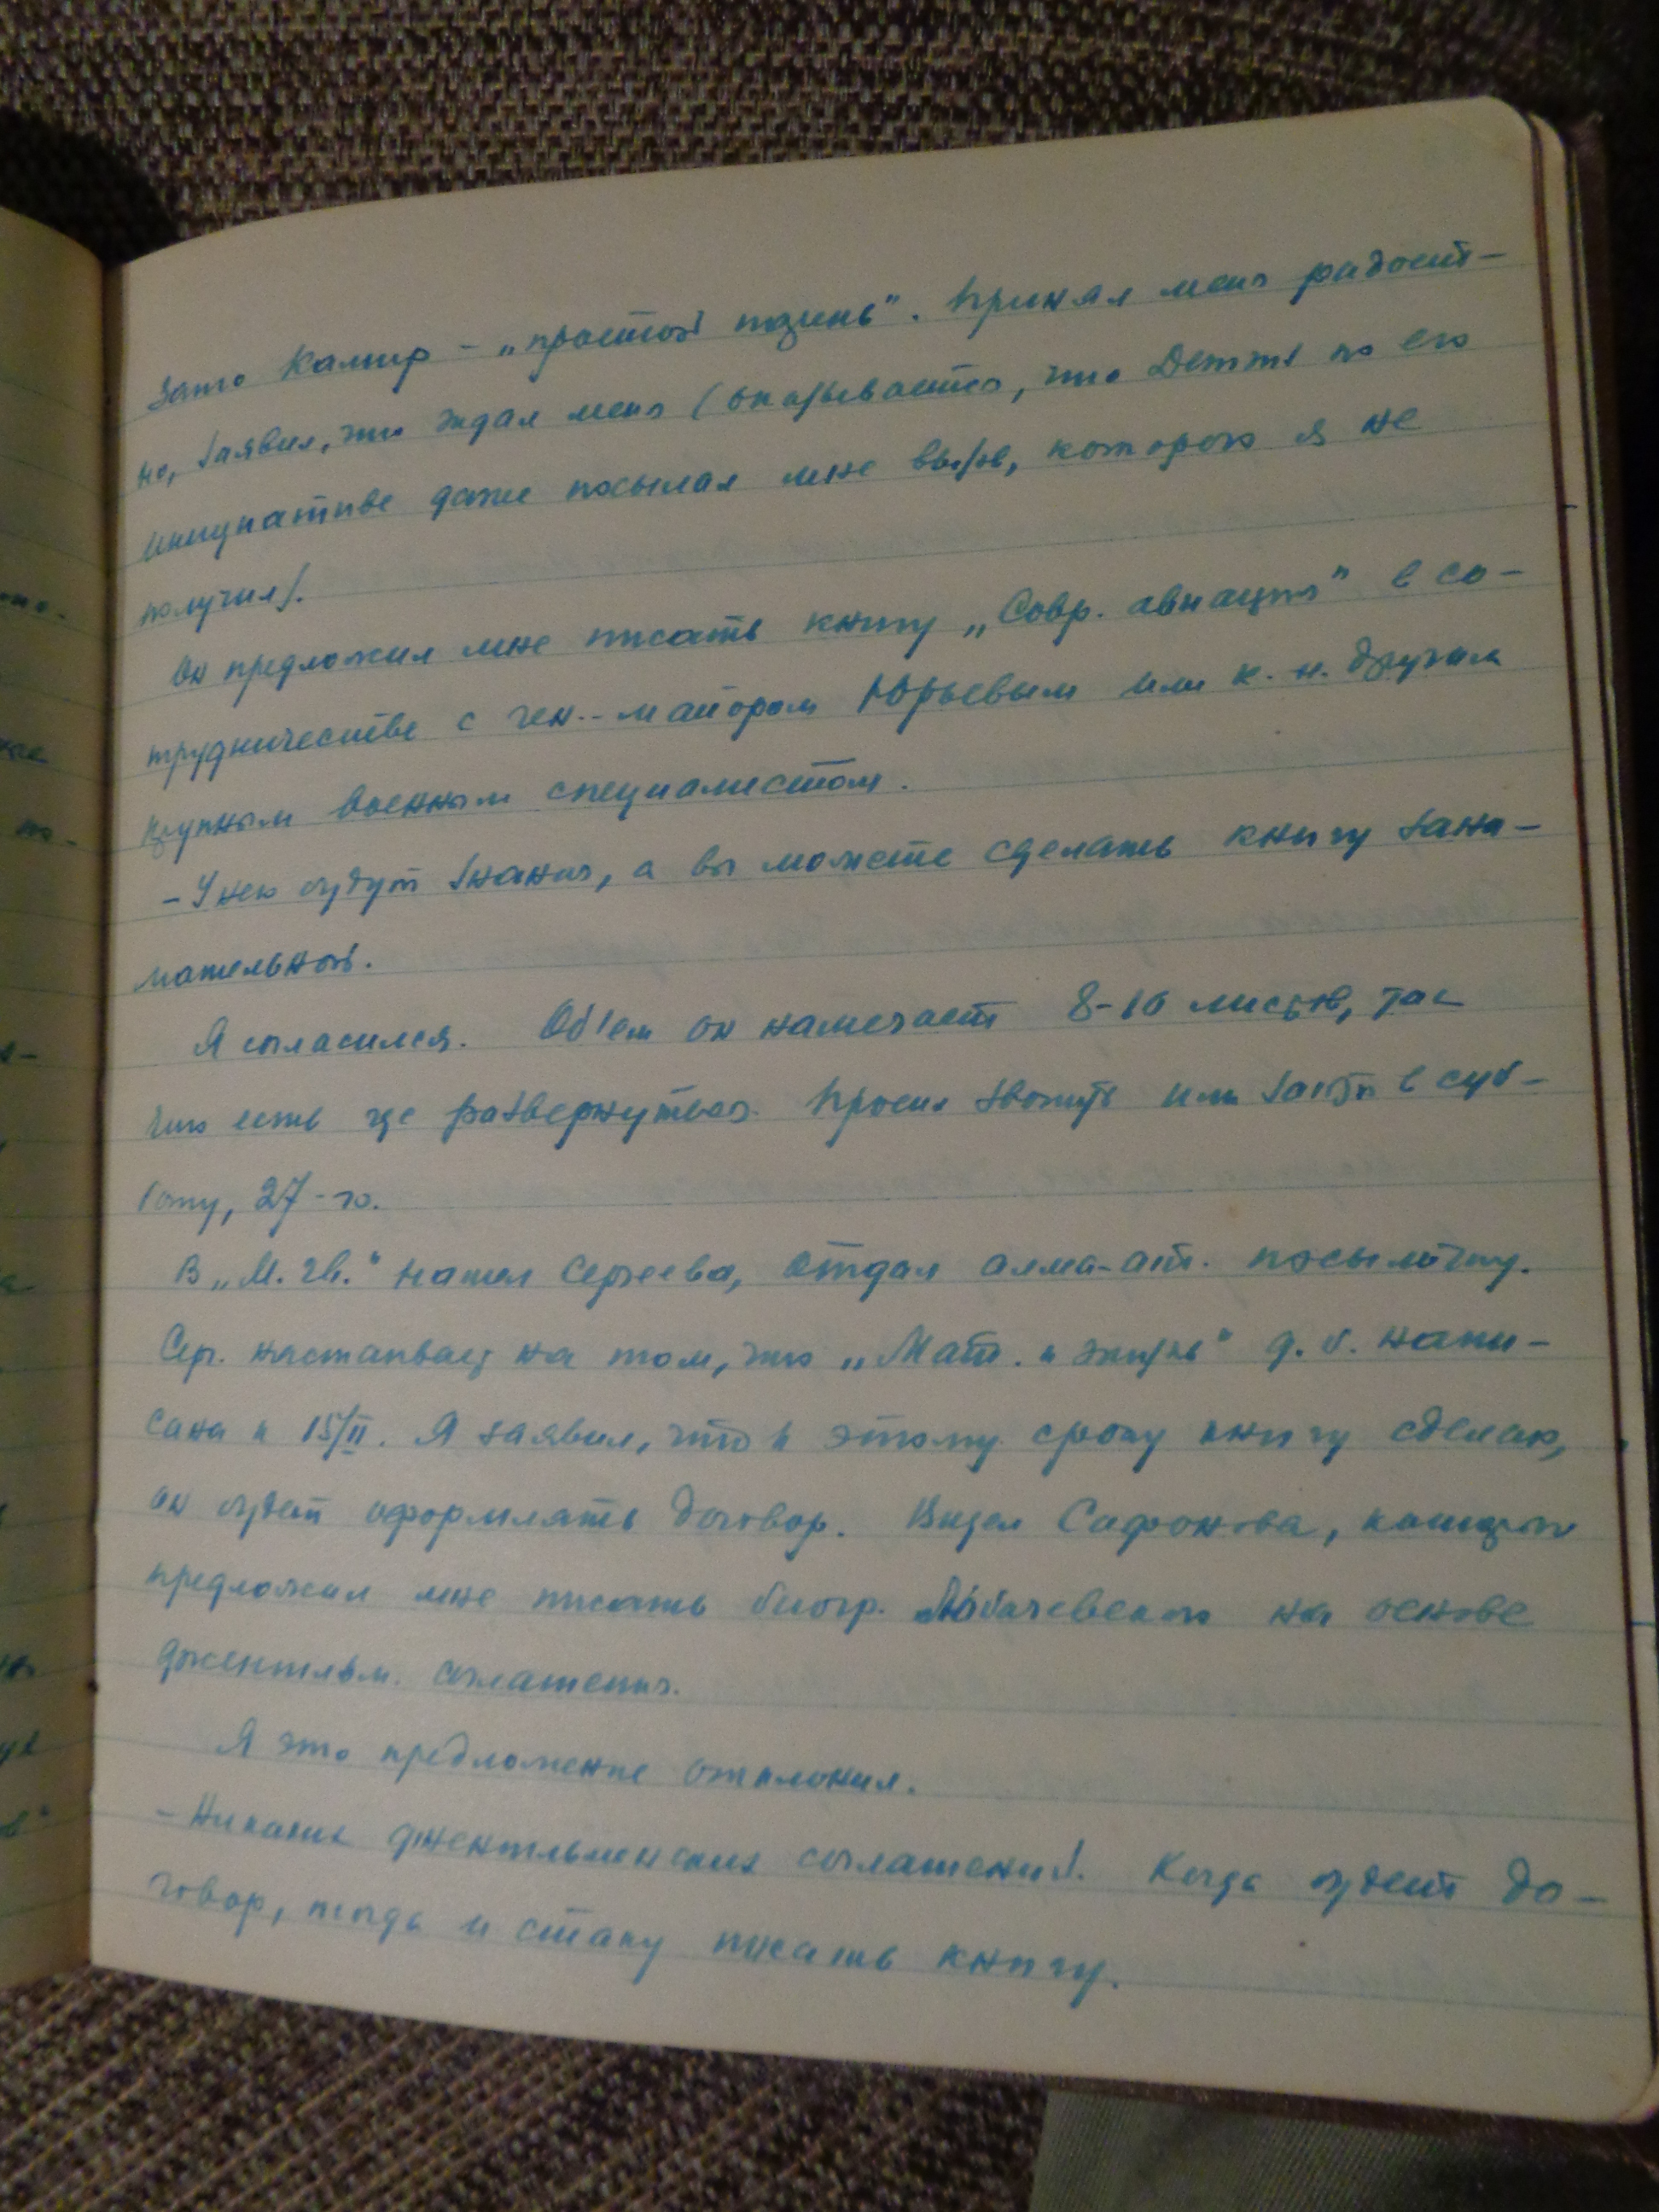 Зато Камир – „простой парень". Принял меня радост-
но, заявил, что ждал меня (оказывается, что Детгиз по его
инициативе даже посылал мне вызов, которого я не
получил).
Он предложил мне писать книгу „Совр. авиация" в со-
трудничестве с ген.-майором Юрьевым или к. н. другим
крупным военным специалистом.
– У него будут знания, а вы можете сделать книгу зани-
мательной.
Я согласился. Об'ем он намечает 8-10 листов, так
что есть где развернуться. Просил звонить или зайти в суб-
боту, 27-го.
В „М. Гв." нашел Сергеева, отдал алма-ат. посылочку.
Сер. настаивает на том, что „Мат. и жизнь" д. б. напи-
сана к 15/II. Я заявил, что к этому сроку книгу сделаю,
он будет оформлять договор. Видел Сафонова, который
предложил мне писать биогр. Лобачевского на основе
джентльм. соглашения.
Я это предложение отклонил.
– Никаких джентльменских соглашений. Когда будет до-
говор, тогда и стану писать книгу.